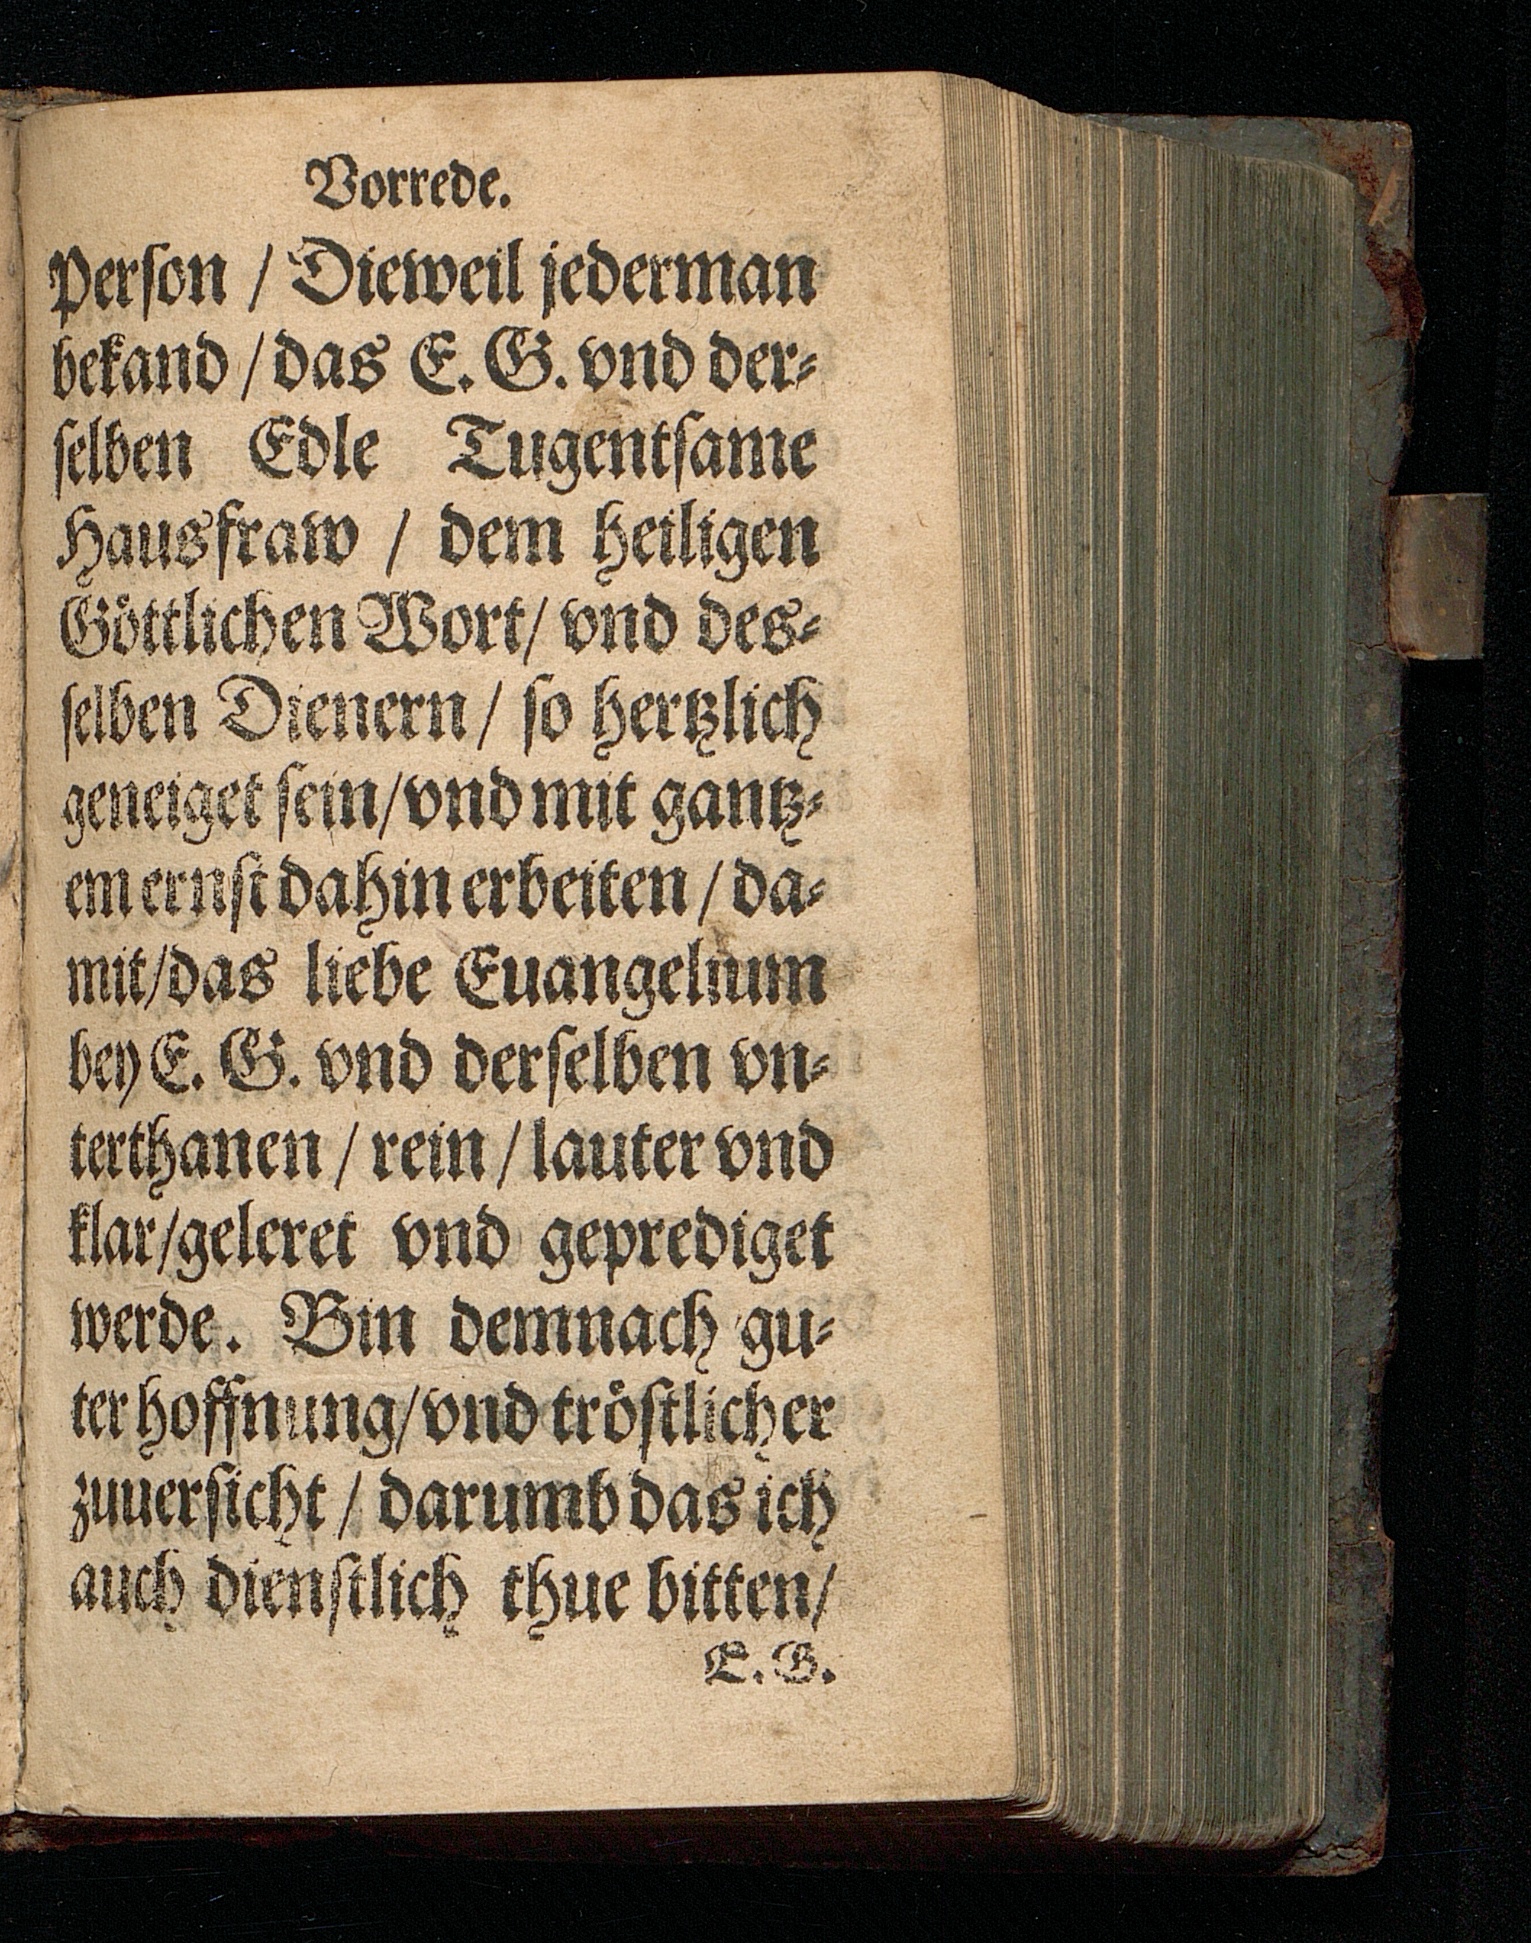 Vorrede.
Person / Dieweil jederman
bekand / das E. G. vnd der⸗
ſelben Edle Tugentſame
Hausfraw / dem heiligen
Goͤttlichen Wort / vnd des⸗
ſelben Dienern / ſo hertzlich
geneiget ſein / vnd mit gantz⸗
em ernſt dahin erbeiten / da⸗
mit / das liebe Euangelium
bey E. G. vnd derſelben vn⸗
terthanen / rein / lauter vnd
klar / geleret vnd geprediget
werde. Bin demnach gu⸗
ter hoffnung / vnd troͤſtlicher
zuuerſicht / darumb das ich
auch dienſtlich thue bitten /
E. G.